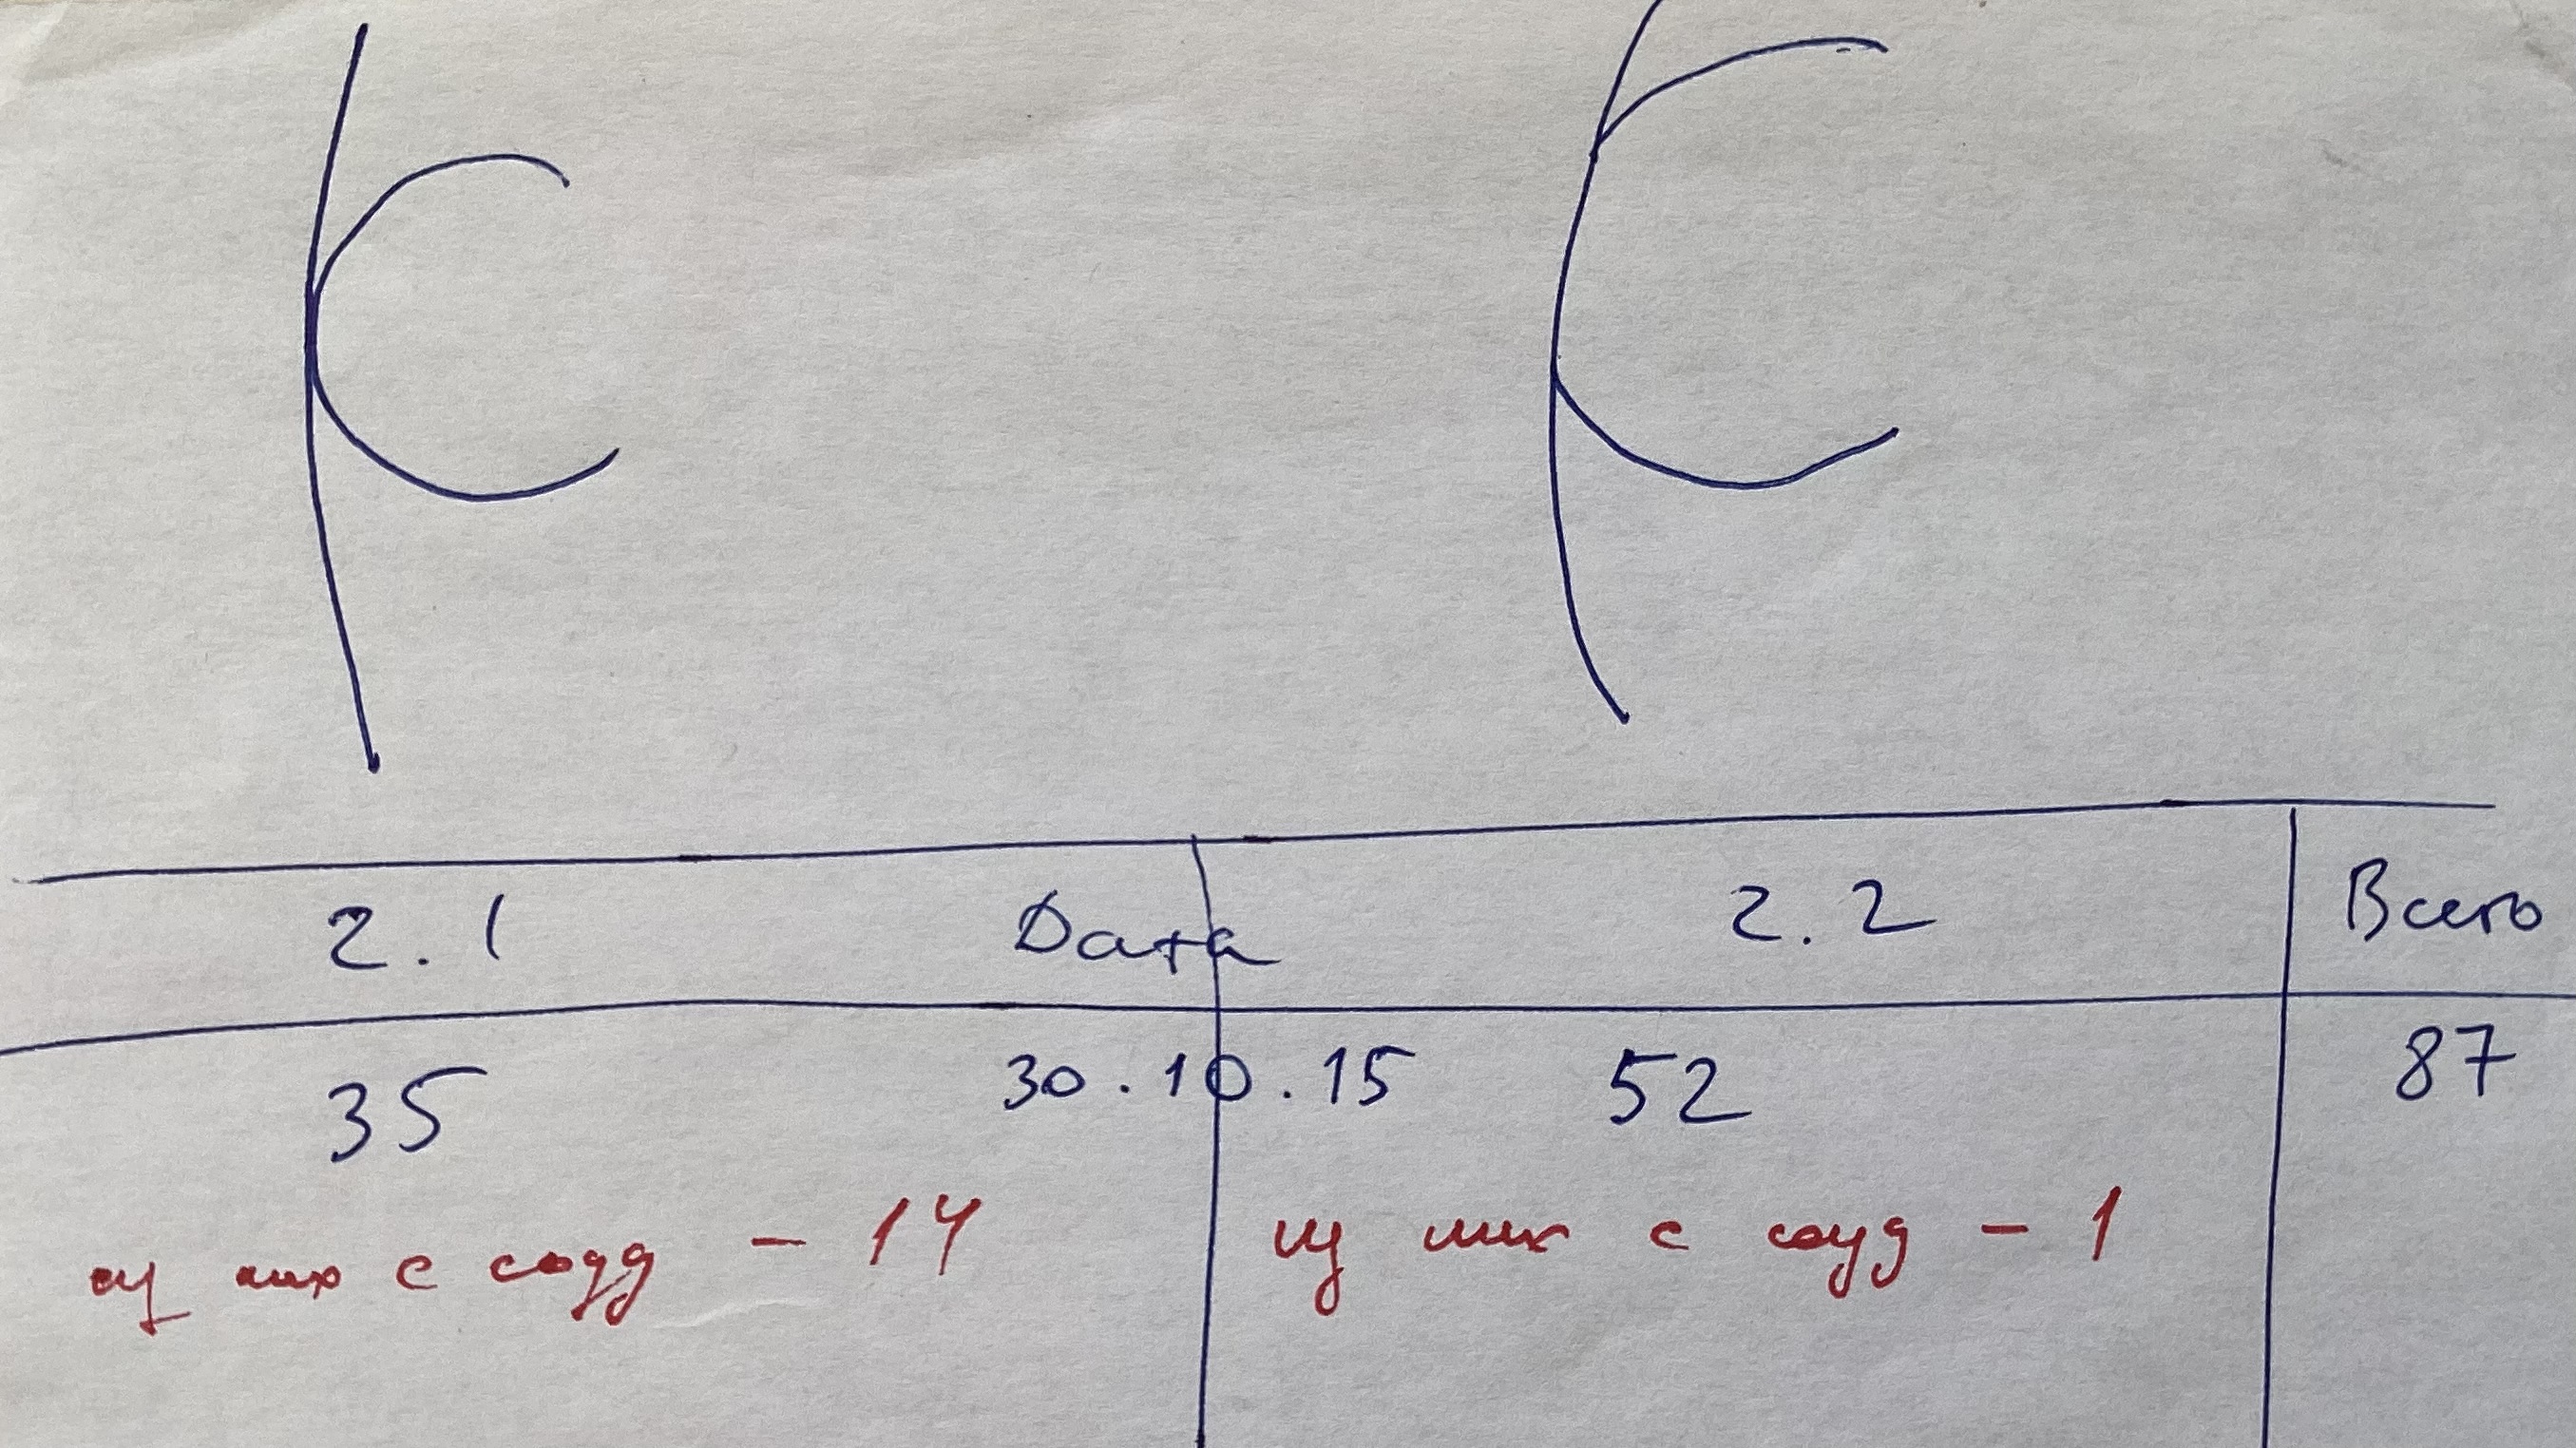 2.1 Дата 2.2 Всего
35 30.10.15 52 87
из них с соуд - 14 из них с соуд - 1